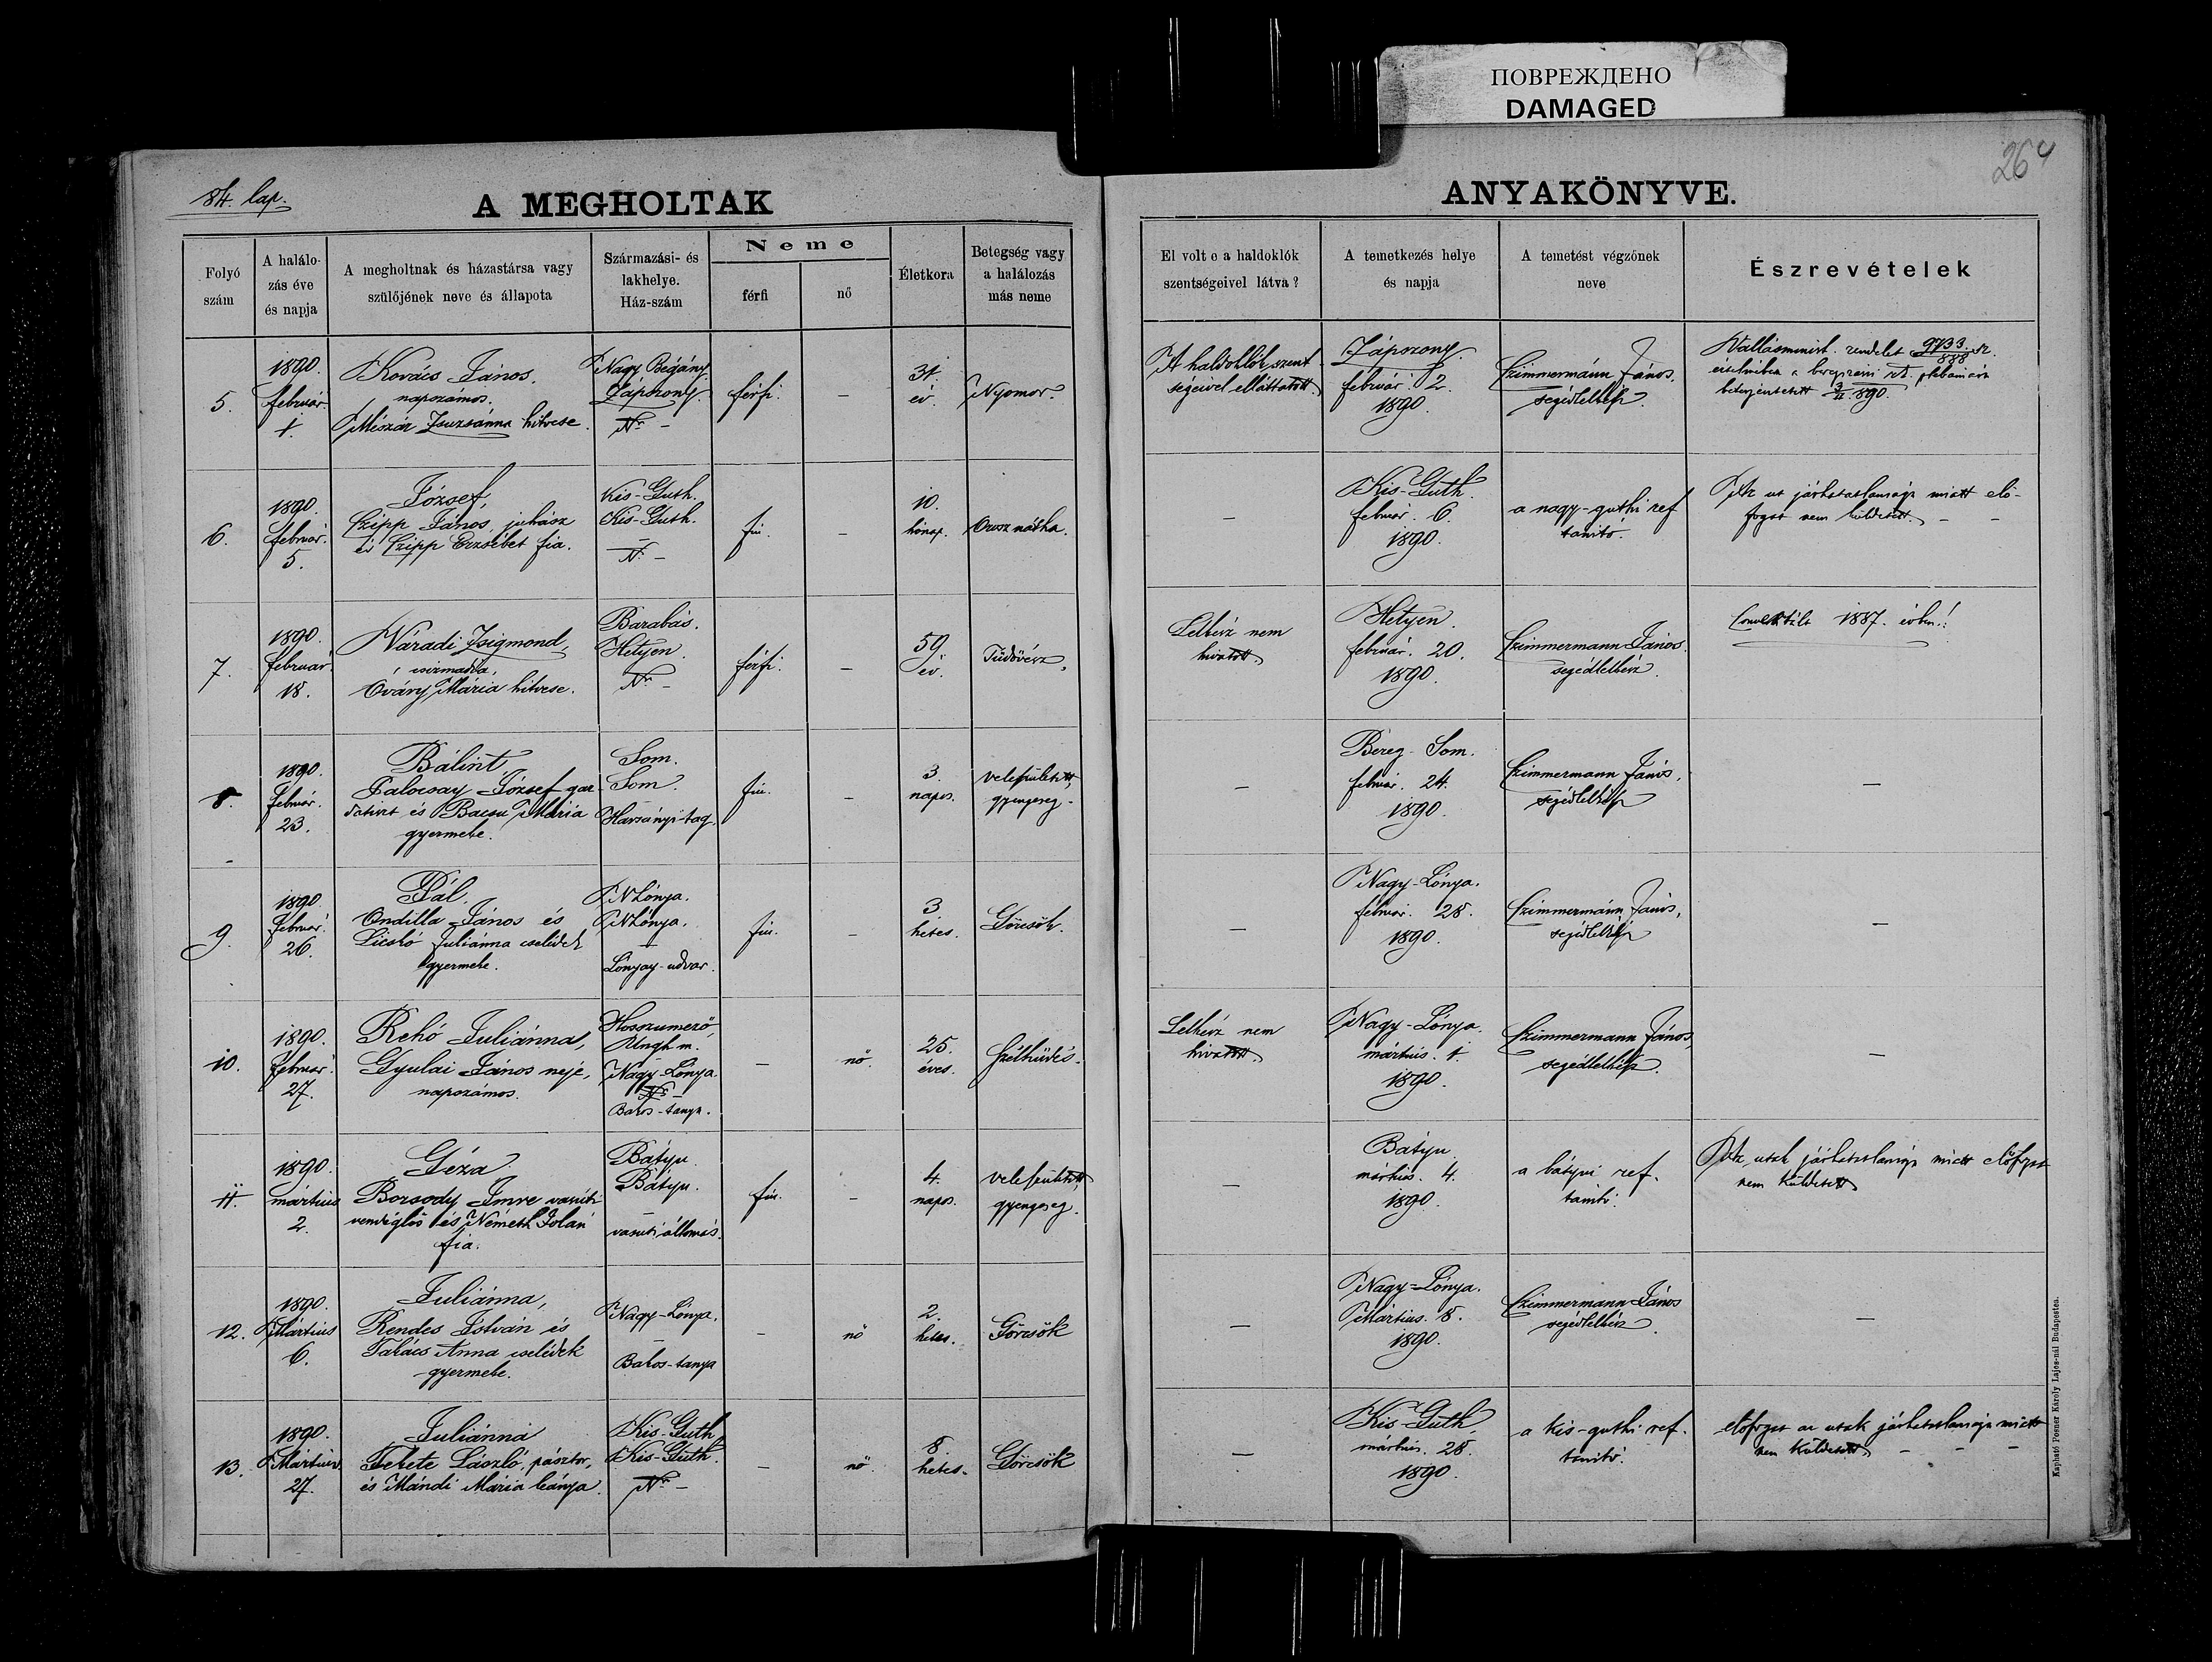 ПОВРЕЖДЕНО
DAMAGED
264
84. lap.
A MEGHOLTAK
ANYAKÖNYVE.
Folyó szám
A halálo-zás éve és napja
A megholtnak és házastársa vagy szülőjének neve és állapota
Származási- és lakhelye. Ház-szám
Neme
férfi
nő
Életkora
Betegség vagy a halálozás más neme
El volt e a haldoklók szentségeivel látva?
A temetkezés helye és napja
A temetést végzőnek neve
Észrevételek
5.
1890.
február.
1.
Kovács János.
napszámos.
Mészár Zsuzsánna hitvese.
Nagy Bégány.
Zápszony.
Nr. –
férfi.
–
31.
év.
Nyomor.
A haldoklók szent-
ségeivel elláttatott.
Zápszony.
február. 2.
1890.
Czimmermánn János,
segédlelkész.
Vallásminist. rendelet 9733/888 sz.
értelmében a beregszászi plébániára
beterjesztetett 3/II 890.
6.
1890.
február.
5.
József,
Czipp János, juhász
és Czipp Erzsébet fia.
Kis-Guth.
Kis-Guth.
–
Nr. –
fiú.
–
10.
hónap.
Orosz nátha.
–
Kis-Guth.
február. 6.
1890.
a nagy-guthi ref
tanító.
Az ut járhatatlansága miatt elő-
fogat nem küldetett. – –
7.
1890.
február.
18.
Váradi Zsigmond,
csizmadia,
Ováry Mária hitvese.
Barabás.
Hetyen.
Nr. –
férfi.
–
59.
év.
Tüdővész.
Lelkész nem
hivatott.
Hetyen.
február. 20.
1890.
Czimmermann János.
segédlelkész.
Convertált 1887. évben!
8.
1890.
február.
23.
Bálint,
Palocsay József gaz-
datiszt és Bacsu Mária
gyermeke.
Som.
Som.
–
Harsányi-tag.
fiú.
–
3.
napos.
veleszületett
gyengeség.
–
Bereg-Som.
február. 24.
1890.
Czimmermann János,
segédlelkész
–
9.
1890.
február.
26.
Pál.
Ondilla János és
Licskó Juliánna cselédek
gyermeke.
N Lónya.
N Lónya.
–
Lónyay-udvar.
fiú.
–
3
hetes.
Görcsök.
–
Nagy-Lónya.
február. 28.
1890.
Czimmermánn János,
segédlelkész
–
10.
1890.
február.
27.
Rehó Juliánna,
Gyulai János neje,
napszámos.
Hosszumező
Ungh m.
Nagy-Lónya.
Nr. –
Bakos-tanya.
–
nő.
25.
éves.
Szélhüdés.
Lelkész nem
hivatott.
Nagy-Lónya.
mártius. 1.
1890.
Czimmermann János,
segédlelkész.
–
11.
1890.
mártius
2.
Géza
Borsody Imre vasuti
vendéglős és Németh Jolán
fia.
Bátyu.
Bátyu.
–
vasuti állomás.
fiú.
–
4.
napos.
veleszületett
gyengeség.
–
Batyu.
mártius. 4.
1890.
a bátyui ref.
tanitó.
Az utak járhatatlansága miatt előfogat
nem küldetett
12.
1890.
Mártius
6.
Juliánna,
Rendes István és
Takács Anna cselédek
gyermeke.
Nagy-Lónya.
–
Bakos-tanya
–
nő
2.
hetes.
Görcsök
–
Nagy-Lónya.
Mártius. 8.
1890.
Czimmermann János
segédlelkész
–
13.
1890.
Mártius.
27.
Juliánna
Fekete László, pásztor,
és Mándi Mária leánya.
Kis-Guth
Kis-Guth.
Nr. –
–
nő.
8.
hetes.
Görcsök
–
Kis-Guth,
mártius. 28.
1890.
a kis-guthi ref.
tanitó.
előfogat az utak járhatatlansága miatt
nem küldetett – – –
Kapható Posner Károly Lajos-nál Budapesten.